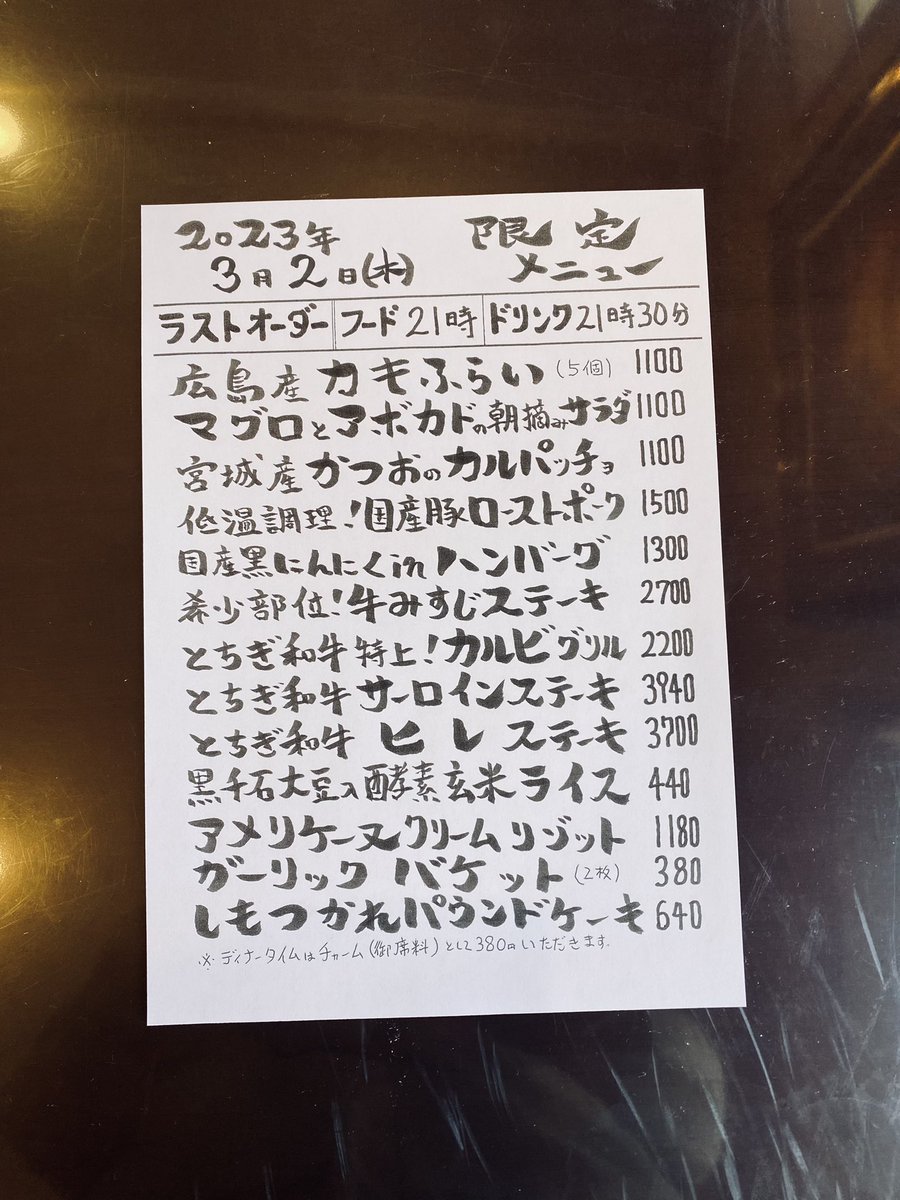 2023年 限定
3月2日(木) メニュー
ラストオーダー フード21時 ドリンク21時30分
広島産カキふらい(5個) 1100
マグロとアボカドの朝摘みサラダ 1100
宮城産かつおのカルパッチョ 1100
低温調理!国産豚ローストポーク 1500
国産黒にんにくinハンバーグ 1300
希少部位!牛みすじステーキ 2700
とちぎ和牛特上!カルビグリル 2200
とちぎ和牛サーロインステーキ 3940
とちぎ和牛ヒレステーキ 3700
黒千石大豆入酵素玄米ライス 440
アメリケーヌクリームリゾット 1180
ガーリックバケット(2枚) 380
しもつかれパウンドケーキ 640
※ディナータイムはチャーム(御席料)として380円いただきます。